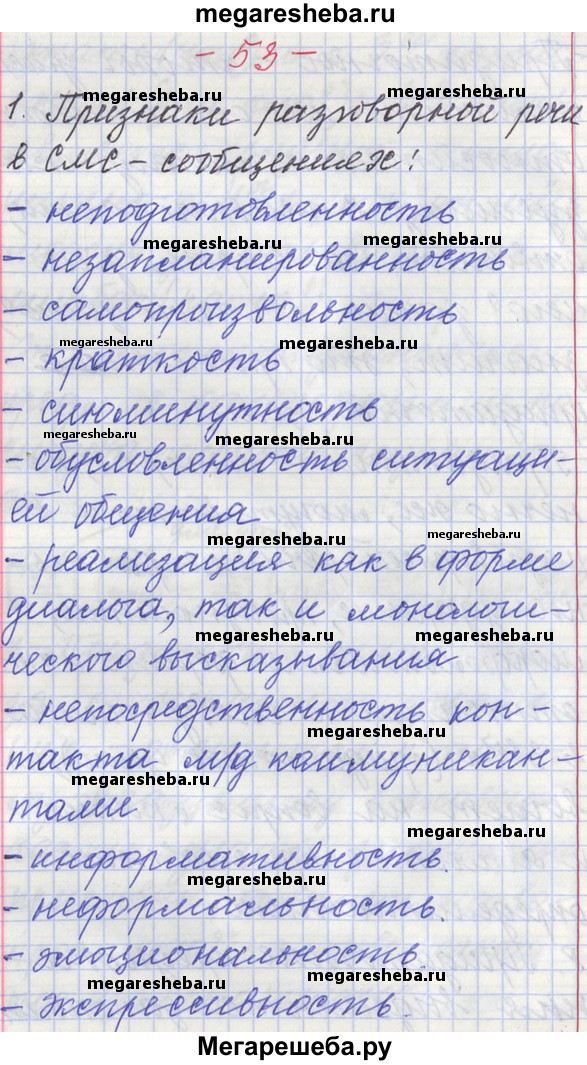 megaresheba.ru
- 53 -
megaresheba.ru megaresheba.ru
1. Признаки разговорной речи
в СМС - сообщениях:
- неподготовленность
megaresheba.ru megaresheba.ru
- незапланированность
- самопроизвольность
megaresheba.ru megaresheba.ru
- краткость
- сиюминутность
megaresheba.ru megaresheba.ru
- обусловленность ситуаци-
ей общения
megaresheba.ru megaresheba.ru
- реализация как в форме
megaresheba.ru
диалога, так и монологи-
megaresheba.ru megaresheba.ru
ческого высказывания
- непосредственность кон-
megaresheba.ru
такта м/д коммуникан-
megaresheba.ru
тами
megaresheba.ru
- информативность.
megaresheba.ru
- неформальность.
- эмоциональность.
megaresheba.ru megaresheba.ru
- экспрессивность.
Мегарешеба.ру